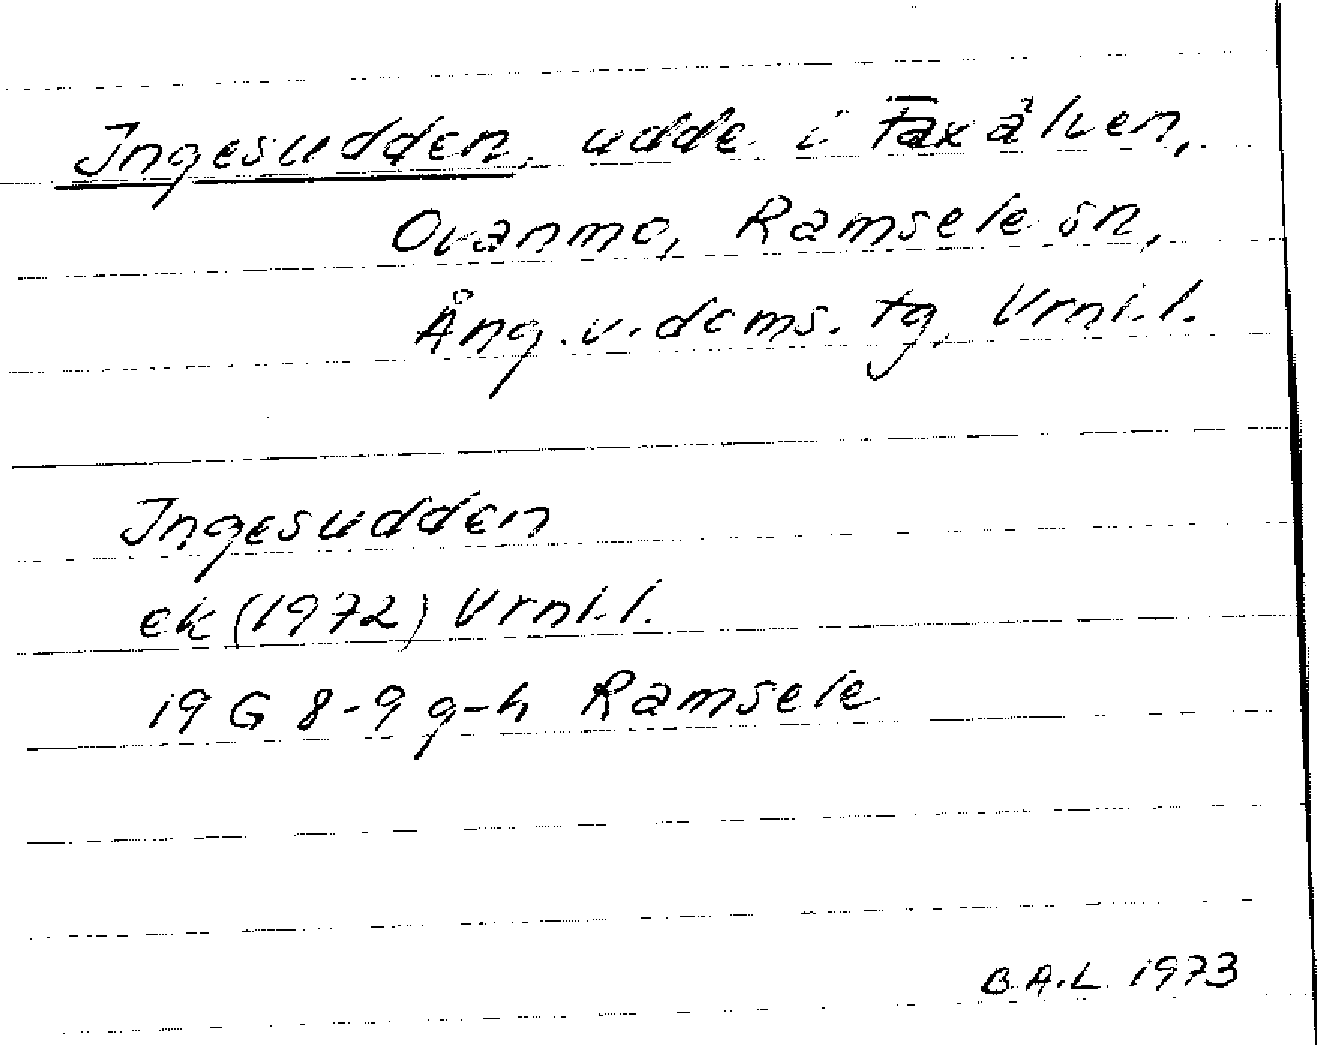 Ingesudden, udde i Faxälven,
Ovanmo, Ramsele sn,
Ång. v. doms. tg, Vrnl. l.
Ingesudden
ek (1972) Vrnl. l.
19 G 8-9 g-h Ramsele
B.A.L 1973